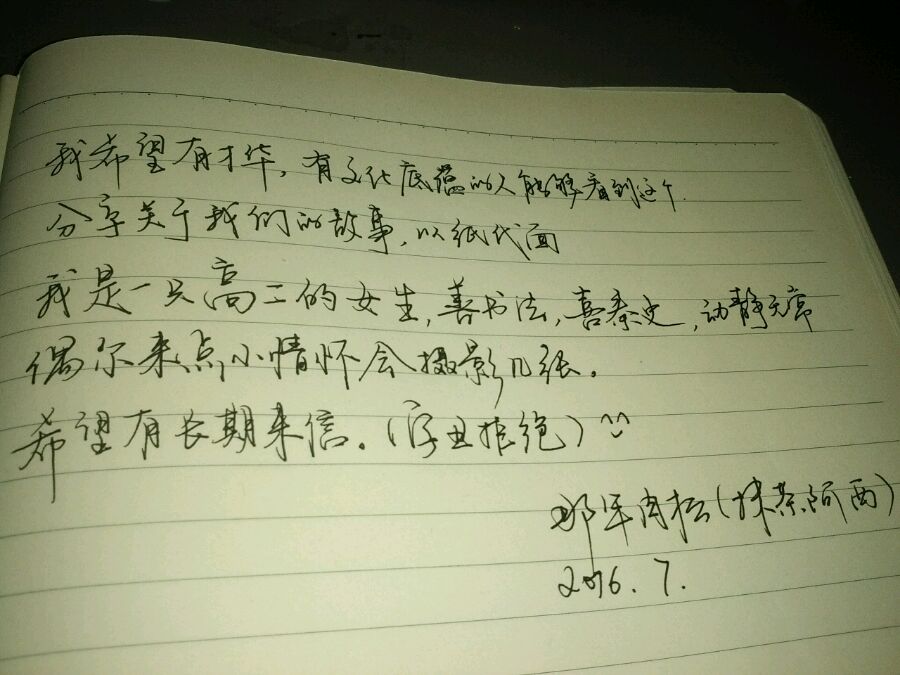 我希望有才华，有文化底蕴的人能够看到这个
分享关于我们的故事，以纸代面
我是一只高二的女生，善书法，喜秦史，动静无常
偶尔来点小情怀会摄影几张。
希望有长期来信。（字丑拒绝）
那年肉松（抹茶阿西）
2016.7.